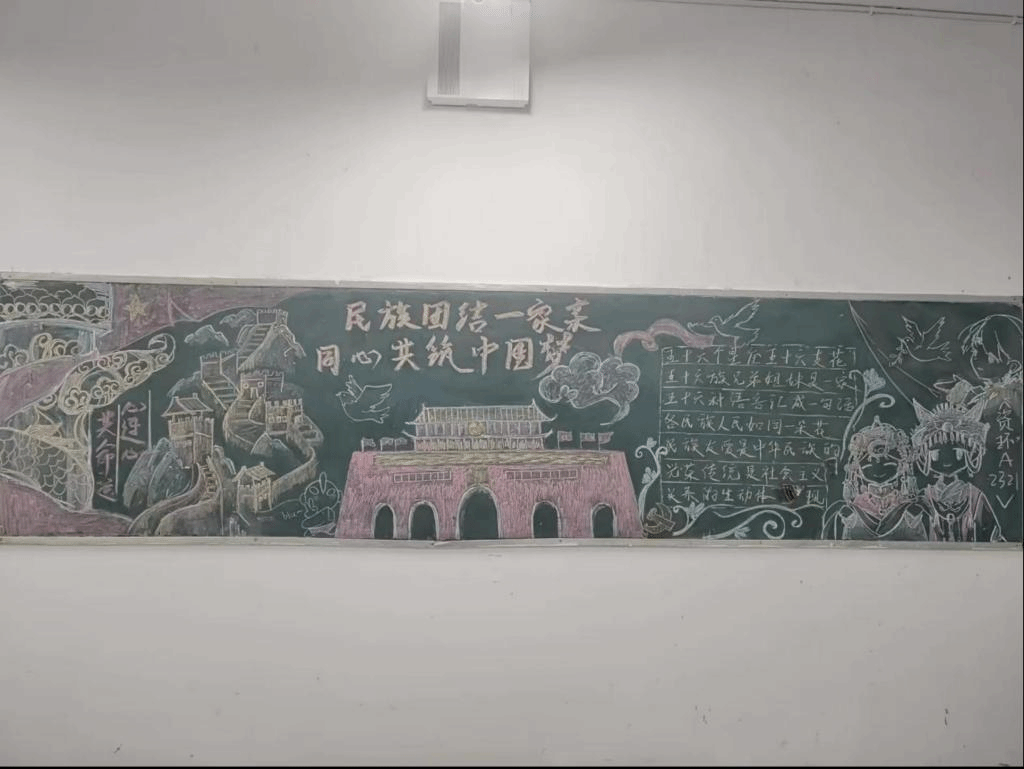 民族团结一家亲
同心共筑中国梦
心连心
共命运
五十六个星座五十六支花
五十六族兄弟姐妹是一家
五十六种语言汇成一句话
各民族人民如同一朵花
民族友爱是中华民族的
光荣传统是社会主义
关系的生动体现
人资环A
2321